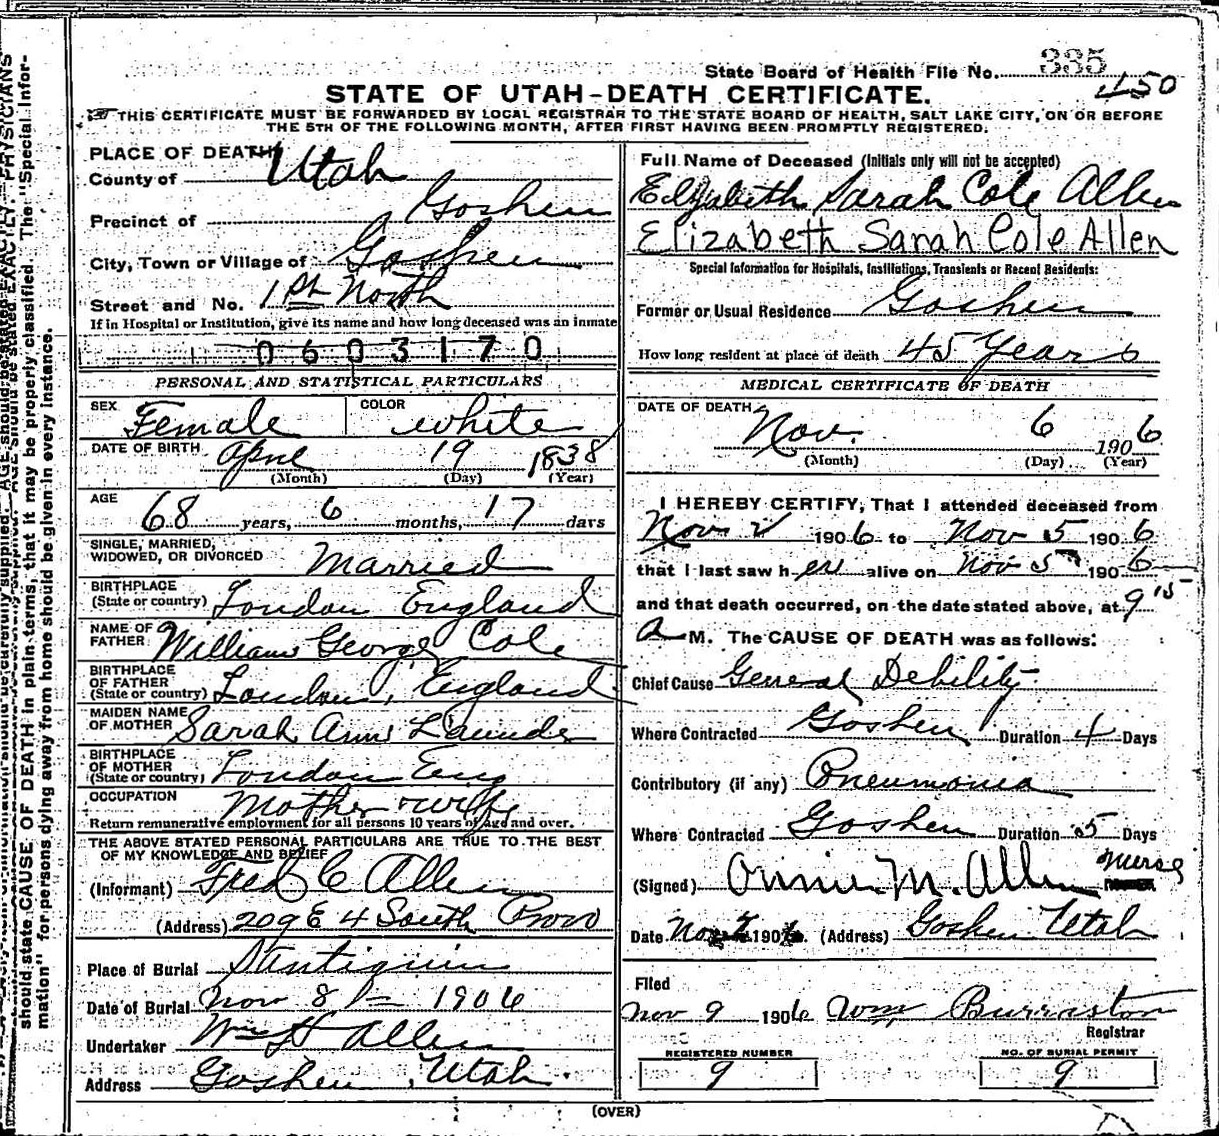 State Board of Health File No. 335
450
STATE OF UTAH-DEATH CERTIFICATE.
THIS CERTIFICATE MUST BE FORWARDED BY LOCAL REGISTRAR TO THE STATE BOARD OF HEALTH, SALT LAKE CITY, ON OR BEFORE
THE 5TH OF THE FOLLOWING MONTH, AFTER FIRST HAVING BEEN PROMPTLY REGISTERED.
PLACE OF DEATH
County of Utah
Precinct of Goshen
City, Town or Village of Goshen
Street and No. 1st North
If in Hospital or Institution, give its name and how long deceased was an inmate
0603170
PERSONAL AND STATISTICAL PARTICULARS
SEX Female COLOR white
DATE OF BIRTH April 19 1838
(Month) (Day) (Year)
AGE 68 years, 6 months, 17 days
SINGLE, MARRIED,
WIDOWED, OR DIVORCED Married
BIRTHPLACE
(State or country) London England
NAME OF
FATHER William George Cole
BIRTHPLACE
OF FATHER
(State or country) London, England
MAIDEN NAME
OF MOTHER Sarah Ann
BIRTHPLACE
OF MOTHER
(State or country) London Eng
OCCUPATION Mother & wife
Return remunerative employment for all persons 10 years of age and over.
THE ABOVE STATED PERSONAL PARTICULARS ARE TRUE TO THE BEST
OF MY KNOWLEDGE AND BELIEF
(Informant) Fred C Allen
(Address) 209 E 4 South Provo
Place of Burial
Date of Burial Nov 8 1906
Undertaker Wm H Allen
Address Goshen, Utah.
Full Name of Deceased (Initials only will not be accepted)
Elizabeth Sarah Cole Allen
Elizabeth Sarah Cole Allen
Special Information for Hospitals, Institutions, Transients or Recent Residents:
Former or Usual Residence Goshen
How long resident at place of death 45 Years
MEDICAL CERTIFICATE OF DEATH
DATE OF DEATH
Nov. 6 1906
(Month) (Day) (Year)
I HEREBY CERTIFY, That I attended deceased from
Nov 2 1906 to Nov 5 1906
that I last saw her alive on Nov 5 1906
and that death occurred, on the date stated above, at 9 15
A M. The CAUSE OF DEATH was as follows:
Chief Cause General Debility
Where Contracted Goshen Duration 4 Days
Contributory (if any) Pneumonia
Where Contracted Goshen Duration 5 Days
(Signed) M. Allen nurse
Date Nov 7 1906 (Address) Goshen Utah
Filed
Nov 9 1906 Wm Burraston
Registrar
REGISTERED NUMBER
9
NO. OF BURIAL PERMIT
9
(OVER)
should state CAUSE OF DEATH in plain terms, that it may be properly classified. The "Special Infor-
mation" for persons dying away from home should be given in every instance.